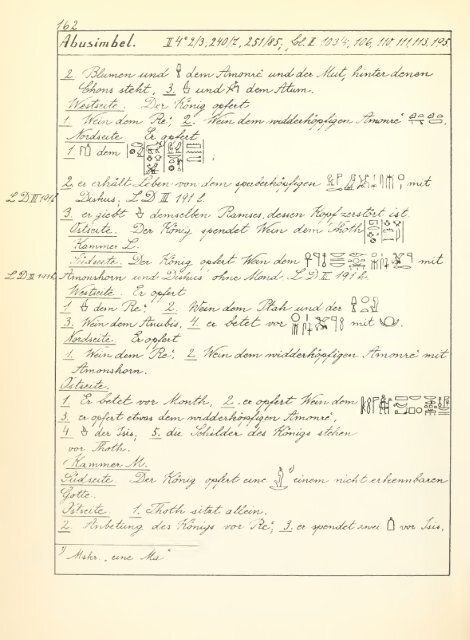 162
Abusimbel. II 4° 2/3, 240/7, 251/85, Cl. II 103 4, 106, 110 111, 113, 195
2. Blumen und dem Amonrē und der Mut, hinter denen
Chons steht, 3. und dem Atum.
Westseite. Der König opfert
1. Wein dem Rē, 2. Wein dem widderköpfigen Amonrē
Nordseite Er opfert
1. dem
2. er erhält Leben von dem sperberköpfigen mit
L D III 191 b Diskus; L D III 191 b.
3. er giebt demselben Ramses, dessen Kopf zerstört ist.
Ostseite. Der König spendet Wein dem Thoth
Kammer L.
Südseite Der König opfert Wein dem mit
L D III 191 b Amonshorn und Diskus ohne Mond. L D III 191 b.
Westseite. Er opfert
1. dem Rē. 2. Wein dem Ptah und der
3. Wein dem Anubis, 4. er betet vor mit
Nordseite. Er opfert
1. Wein dem Rē, 2. Wein dem widderköpfigen Amonrē mit
Amonshorn.
Ostseite.
1. Er betet vor Month, 2. er opfert Wein dem
3. er opfert etwas dem widderköpfigen Amonrē,
4. der Isis, 5. die Schilder des Königs stehen
vor Thoth.
Kammer M.
Südseite Der König opfert eine 1) einem nicht erkennbaren
Gotte.
Ostseite. 1. Thoth sitzt allein.
2. Anbetung des Königs vor Rē, 3. er spendet zwei vor Isis,
1) Mskr. „eine Ma“